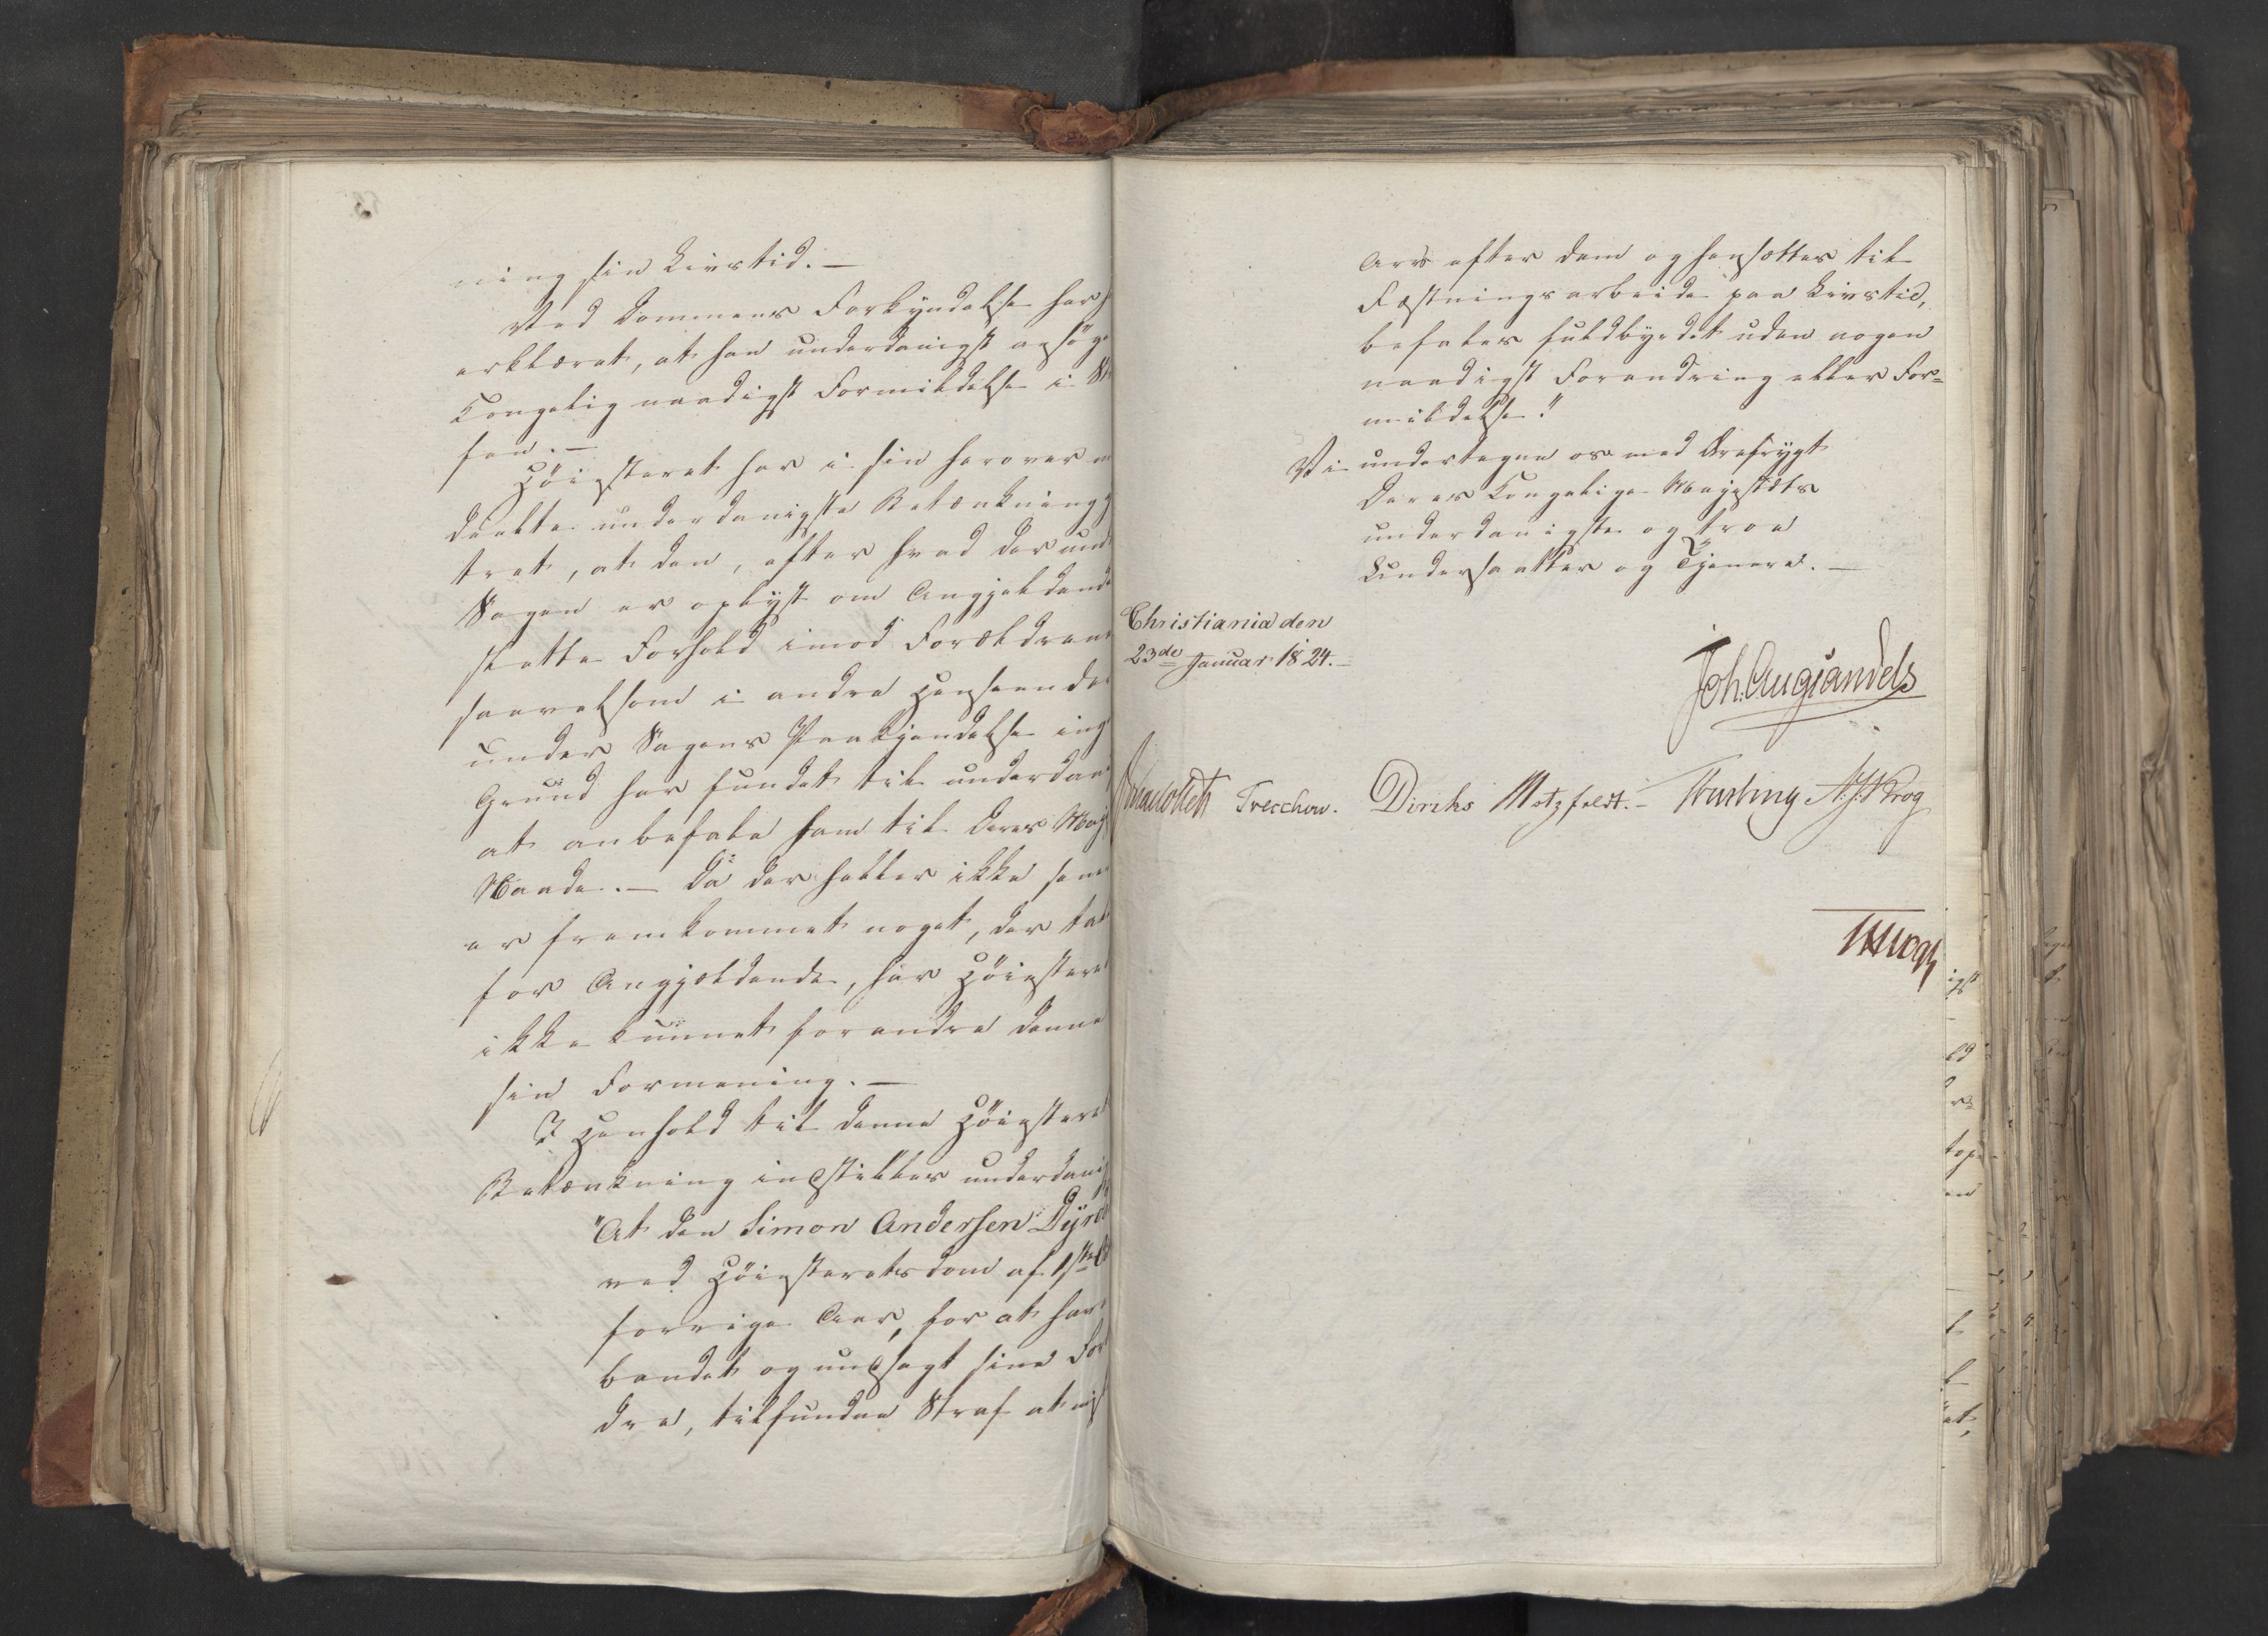 ning sin Livstid. —
Ved Dommens Forkyndelse har h
erklæret, at han underdanigst ansøge
Kongelig naadigst Formildelse i St
fen. —
Höiesteret har i sin herover
deelte underdanigste Betænkning
tret, at den, efter hvad der und
Sagen er oplyst om Angjeldende
slette Forhold imod Forældrene
saavelsom i andre Henseender
under Sagens Paakjendelse ing
Grund har fundet til underdani
at anbefale ham til Deres Maj
Naade. — Da der heller ikke sene
er fremkommet noget, der tal
for Angjældende, har Höiestere
ikke kunnet forandre denne
sin Formening. —
I Henhold til denne Höiestere
Betænkning indstilles underdanig
"At den Simon Andersen Dyre
ved Höiesteretsdom af 1ste
forrige Aar, for at have
bandet og undsagt sine For
dre, tilfundne Straf at mis
Arv efter dem og hensættes til
Fæstningsarbeide paa Livstid,
befales fuldbyrdet uden nogen
naadigst Forandring eller For=
mildelse."
Vi undertegne os med Ærefrygt
Deres Kongelige Majestæts
underdanigste og troe
Undersaatter og Tjenere. —
Christiania den
23de Januar 1824. —
Joh. Aug Sandels
Treschow. Diriks Motzfeldt. — N. J. Krog